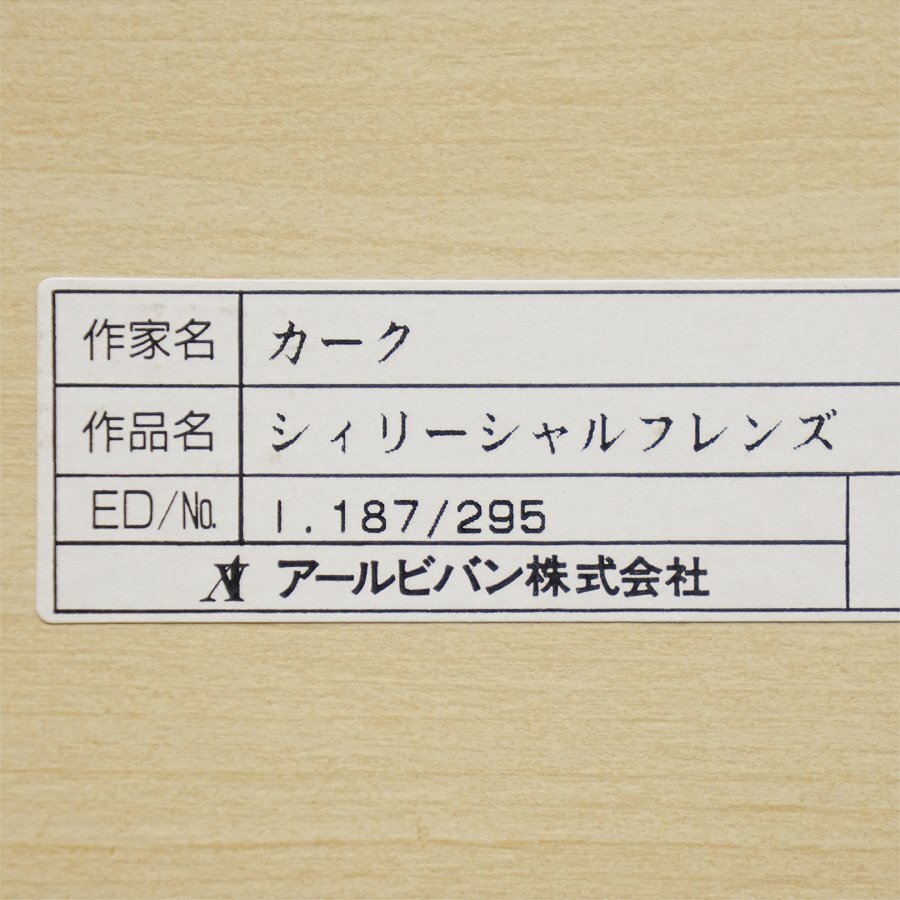 作家名 カーク
作品名 シィリーシャルフレンズ
ED/No. I.187/295
アールビバン株式会社